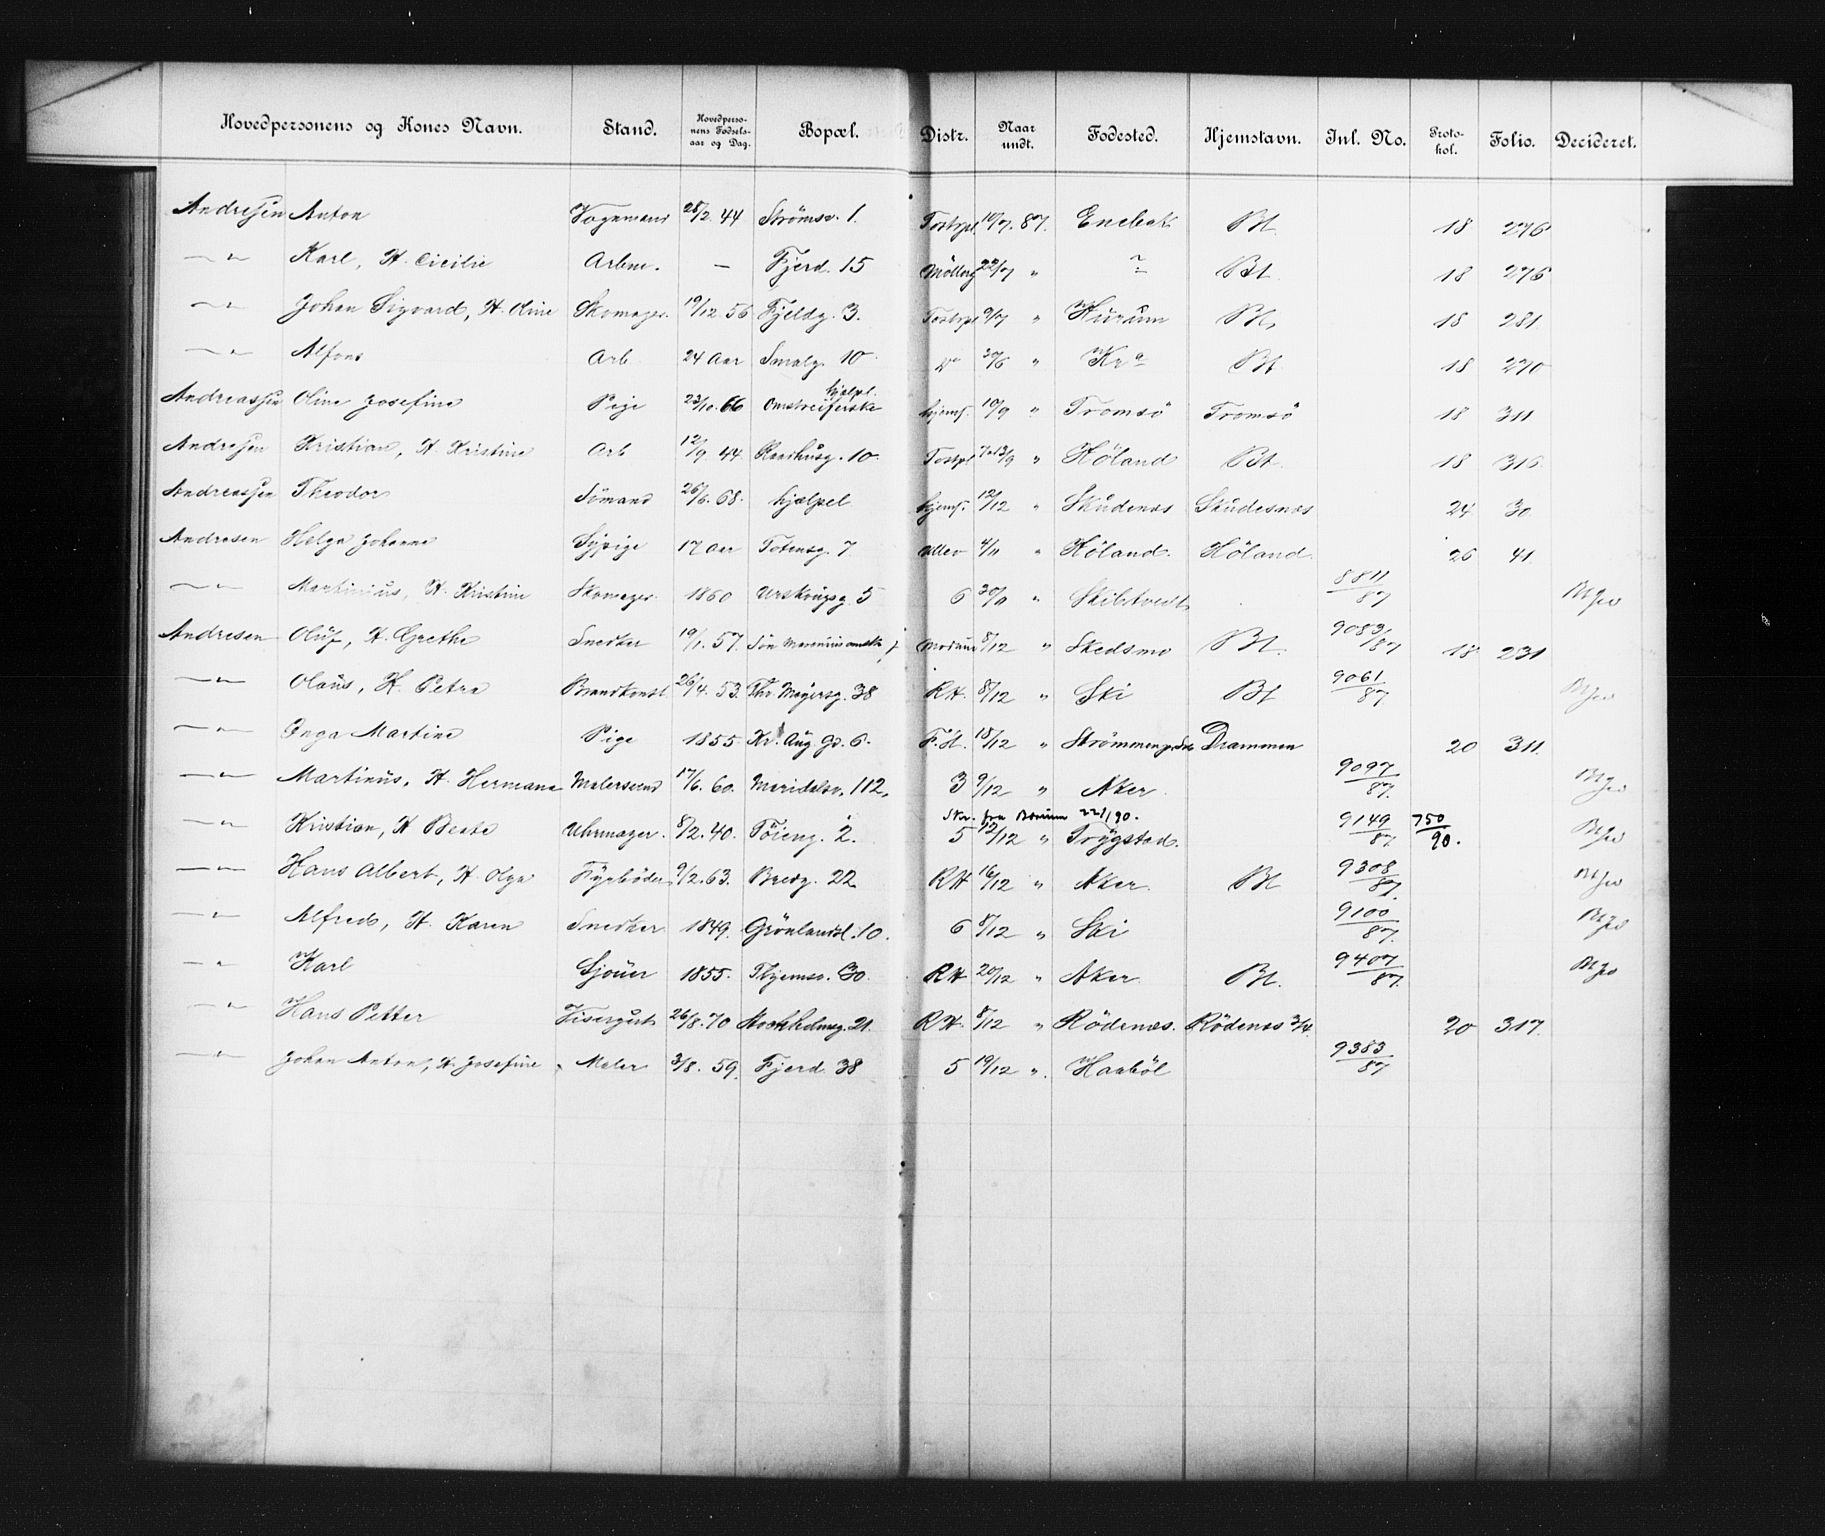 Hovedpersonens og Kones Navn. Stand. Hovedperso-nens Fødsels-aar og Dag. Bopæl. Distr. Naar undt. Fødested. Hjemstavn. Inl. No. Proto-kol. Folio. Decideret.
Andresen Anton Vognmand 28/2. 44 Strömsv. 1. 10/7. 87. Enebak Bt. 18 276
—"— Karl, H. Cicilie Arbm. — Fjerd. 15 Möllerg 22/7 " Bt. 18 276
—"— Johan Sigvard, H. Oline Skomager. 19/12 56 Fjeldg. 3. 9/7 " Hurum Bt. 18 281
—"— Alfons Arb 24 Aar Smalg. 10 Do 30/6 " Kra Bt 18 270
Andreassen Oline Josefine Pige 23/10. 66 hjælpel. Omstreiferske hjemf. 10/9 " Tromsö Tromsö 18 311
Andresen Kristian, H. Kristine Arb 12/9. 44 Raadhusg. 10. 13/9 " Höland Bt. 18 316
Andreassen Theodor Sömand 26/6. 68. hjælpel hjemf. 12/12 " Skudenes Skudesnæs 24 30
Andresen Helga Johanne Sypige 17 Aar Totensg. 7 Ullev 4/11 " Höland. Höland. 26 41.
—"— Martinius, H. Kristine Skomager. 1860 Urskougsg. 5 6 30/11 " 8811/87
Andresen Oluf, H. Grethe Snedker 19/1. 57. 8/12 " Skedsmo Bt. 9083/87 18 231
—"— Olaus, H. Petra Brandkonst. 26/4. 53. Thv. Meyersg. 38 RH. 8/12 " Ski Bt 9061/87
—"— Inga Martine Pige 1855 Kr. Aug Gd. 6. F.H. 18/12 " Drammen 20 311.
—"— Martinus, H. Hermana Malersvend 17/6. 60. Maridalsv. 112. 3 9/12 " Aker 9097/87.
Skr. fra Bærum 22/1 90.
—"— Kristian, H Beate Uhrmager. 8/2. 40. Töieng. 2. 5 12/12 " Trygstad. 9149/87 750/90.
—"— Hans Albert, H. Olga Fyrböder 9/2. 63. Bredg. 22 RH 16/12 " Aker. Bt 9308/87.
—"— Alfred, H. Karen Snedker 1849. Grönlandsl. 10. 6 8/12 " Ski 9100/87.
—"— Karl Sjouer 1855. 30. RH 20/12 " Aker Bt. 9407/87.
" Hans Petter Visergut 26/8. 70 Stockholmsg. 21. RH. 8/12 " Rödenæs. Rödenæs 3/4. 20 317.
—"— Johan Anton, H. Josefine Maler 3/8. 59. Fjerd. 38 5 19/12 " Haaböl 9383/87